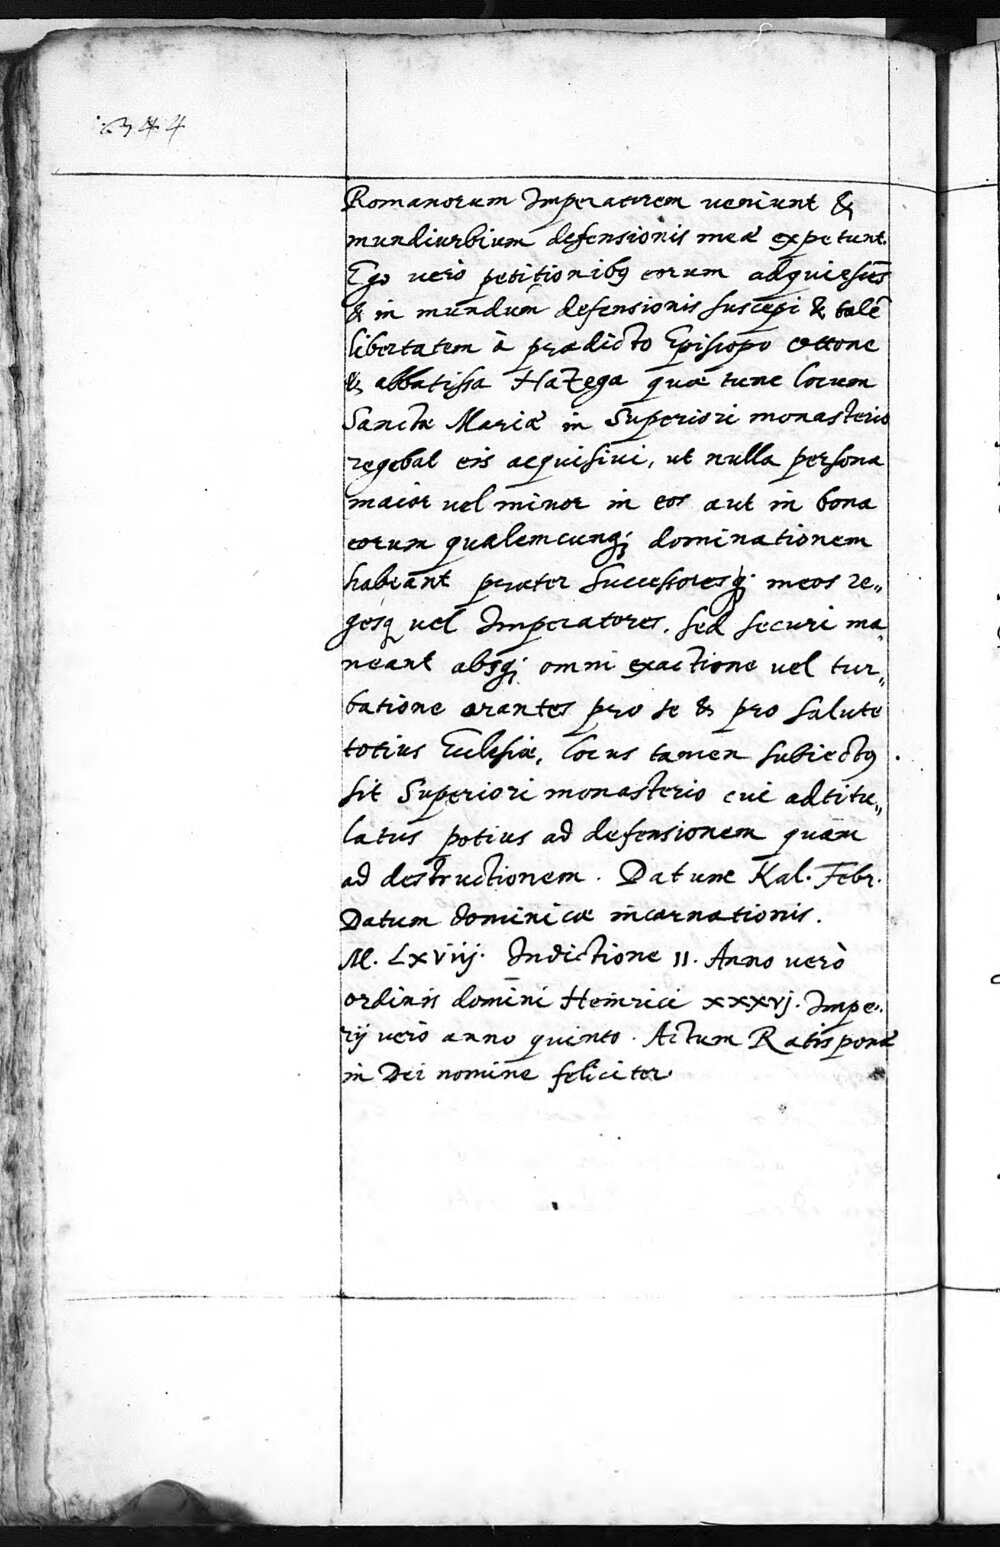 344
Romanorum Imperatorem veniunt &
mundiurbium defensionis meæ expetunt.
Ego vero petitionibꝯ eorum adquiescẽs
& in mundum defensionis suscepi & talẽ
libertatem à prædicto Episcopo Ottone
& abbatissa Hazega quæ tunc locum
Sanctæ Mariæ in Superiori monasterio
regebat eis acquisivi, ut nulla persona
maior vel minor in eos aut in bona
eorum qualemcunqꝫ dominationem
habeant præter Successoresqꝫ meos re„
gesq vel Imperatores. sed securi ma„
neant absqꝫ omni exactione vel tur„
batione orantes pro se & pro salute
totius Eclesiæ, locus tamen subiectꝯ
sit Superiori monasterio cui adtitu„
latus potius ad defensionem quam
ad destructionem. Datum Kal. Febr.
Datum dominicæ incarnationis.
M. Lxviiij. Indictione II. Anno verò
ordinis domini Heinrici xxxvj. Impe„
rij verò anno quinto. Actum Ratisponæ
in Dei nomine feliciter